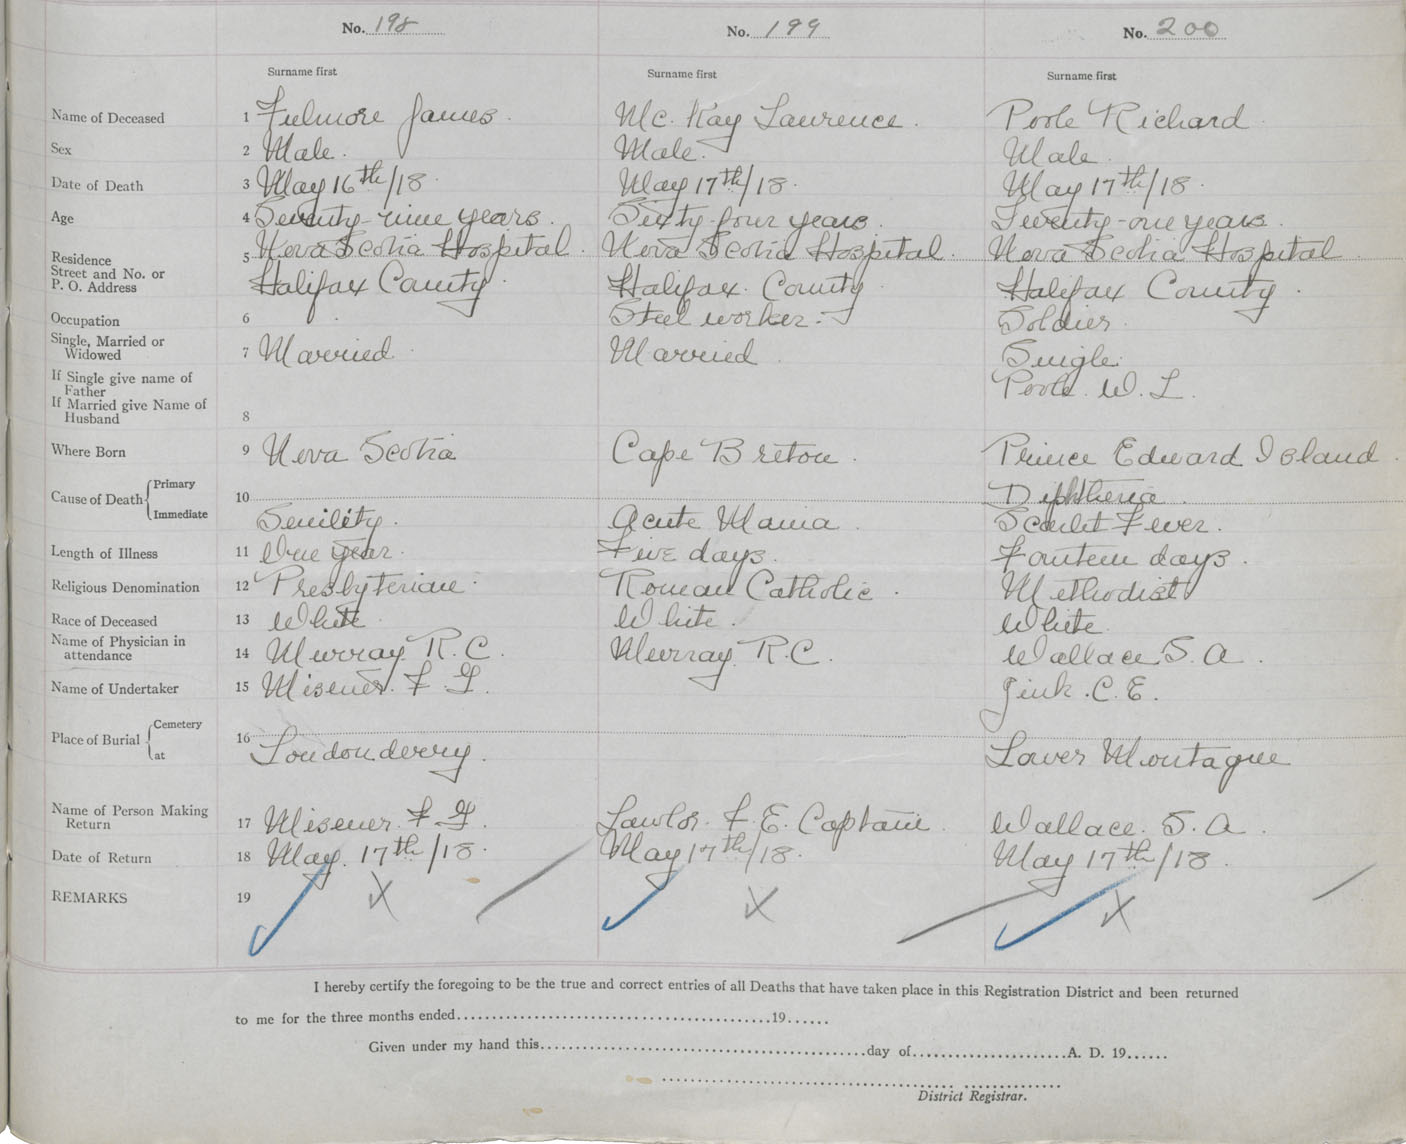 No. 198 No. 199 No. 200
Surname first Surname first Surname first
Name of Deceased 1 Fulmore James. Mc. Kay Laurence. Poole Richard.
Sex 2 Male. Male. Male.
Date of Death 3 May 16th/18. May 17th/18. May 17th/18.
Age 4 Seventy-nine years. Sixty-four years. Twenty-one years.
Residence 5 Nova Scotia Hospital. Nova Scotia Hospital. Nova Scotia Hospital
Street and No. or
P. O. Address Halifax County. Halifax. County Halifax County.
Occupation 6 Steel worker. Soldier.
Single, Married or
Widowed 7 Married. Married. Single.
If Single give name of
Father Poole. W. L.
If Married give Name of
Husband 8
Where Born 9 Nova Scotia Cape Breton. Prince Edward Island.
Cause of Death Primary 10 Diphtheria.
Immediate Senility. Acute Mania. Scarlet Fever.
Length of Illness 11 One year. Five days. Fourteen days.
Religious Denomination 12 Presbyterian. Roman Catholic. Methodist
Race of Deceased 13 White. White. White.
Name of Physician in
attendance 14 Murray. R. C. Murray. R. C. Wallace. S. A.
Name of Undertaker 15 Misener. F. C. E.
Place of Burial Cemetery 16
at Londonderry. Lower Montague
Name of Person Making
Return 17 Misener. F. Lawlor. F. E. Captain. Wallace. S. A.
Date of Return 18 May. 17th/18. May 17th/18. May 17th/18.
REMARKS 19 X X X
I hereby certify the foregoing to be the true and correct entries of all Deaths that have taken place in this Registration District and been returned
to me for the three months ended........................................19......
Given under my hand this........................................day of......................A. D. 19......
District Registrar.